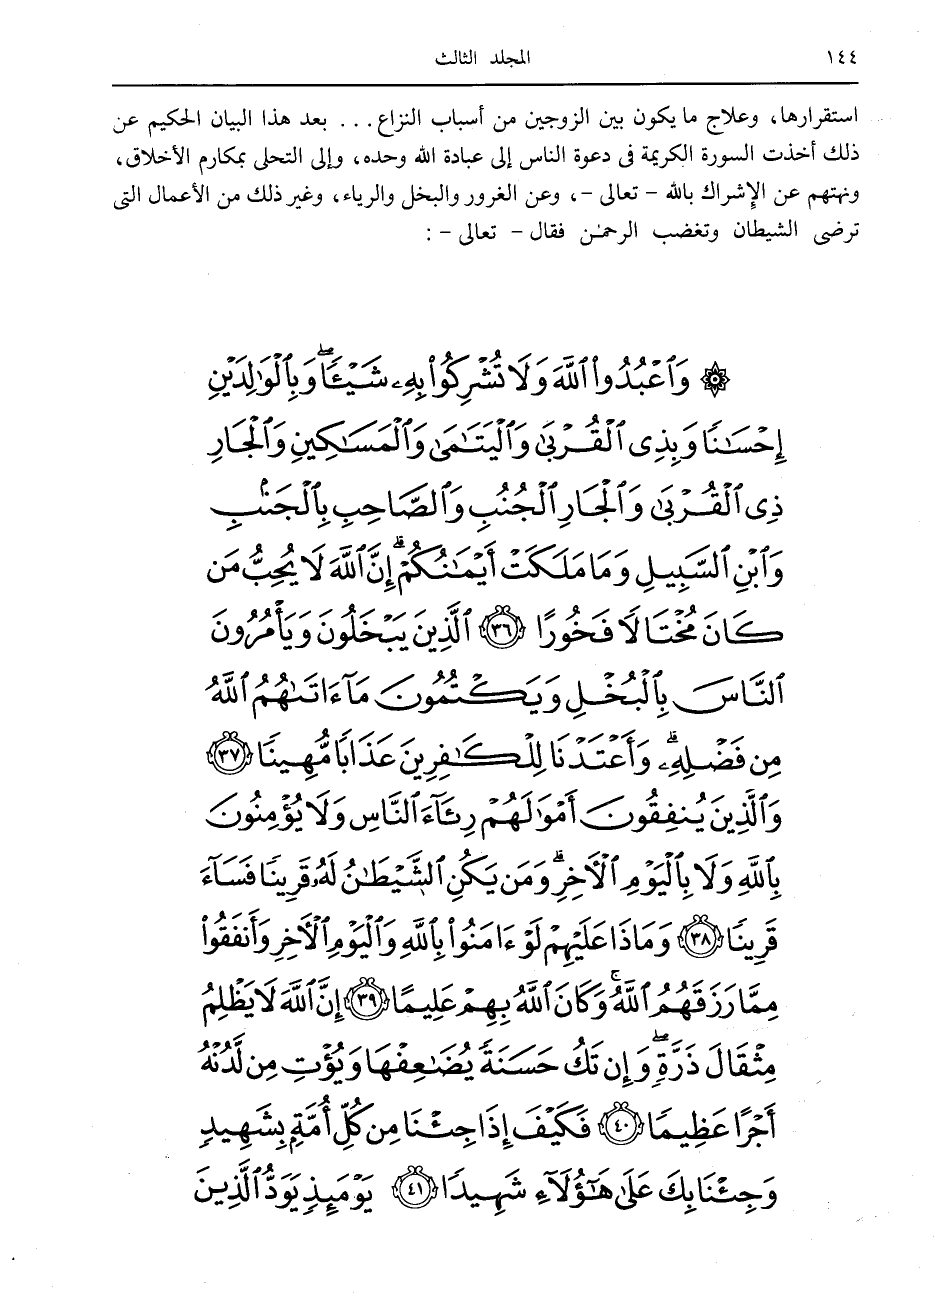 ١٤٤ المجلد الثالث
استقرارها، وعلاج ما يكون بين الزوجين من أسباب النزاع... بعد هذا البيان الحكيم عن
ذلك أخذت السورة الكريمة فى دعوة الناس إلى عبادة الله وحده، وإلى التحلى بمكارم الأخلاق،
ونهتهم عن الإشراك بالله - تعالى -، وعن الغرور والبخل والرياء، وغير ذلك من الأعمال التى
ترضى الشيطان وتغضب الرحمٰن فقال - تعالى - :
۞ وَٱعْبُدُوا۟ ٱللَّهَ وَلَا تُشْرِكُوا۟ بِهِۦ شَيْـًٔا ۖ وَبِٱلْوَٰلِدَيْنِ
إِحْسَٰنًا وَبِذِى ٱلْقُرْبَىٰ وَٱلْيَتَٰمَىٰ وَٱلْمَسَٰكِينِ وَٱلْجَارِ
ذِى ٱلْقُرْبَىٰ وَٱلْجَارِ ٱلْجُنُبِ وَٱلصَّاحِبِ بِٱلْجَنۢبِ
وَٱبْنِ ٱلسَّبِيلِ وَمَا مَلَكَتْ أَيْمَٰنُكُمْ ۗ إِنَّ ٱللَّهَ لَا يُحِبُّ مَن
كَانَ مُخْتَالًا فَخُورًا ٣٦ ٱلَّذِينَ يَبْخَلُونَ وَيَأْمُرُونَ
ٱلنَّاسَ بِٱلْبُخْلِ وَيَكْتُمُونَ مَآ ءَاتَىٰهُمُ ٱللَّهُ
مِن فَضْلِهِۦ ۗ وَأَعْتَدْنَا لِلْكَٰفِرِينَ عَذَابًا مُّهِينًا ٣٧
وَٱلَّذِينَ يُنفِقُونَ أَمْوَٰلَهُمْ رِئَآءَ ٱلنَّاسِ وَلَا يُؤْمِنُونَ
بِٱللَّهِ وَلَا بِٱلْيَوْمِ ٱلْءَاخِرِ ۗ وَمَن يَكُنِ ٱلشَّيْطَٰنُ لَهُۥ قَرِينًا فَسَآءَ
قَرِينًا ٣٨ وَمَاذَا عَلَيْهِمْ لَوْ ءَامَنُوا۟ بِٱللَّهِ وَٱلْيَوْمِ ٱلْءَاخِرِ وَأَنفَقُوا۟
مِمَّا رَزَقَهُمُ ٱللَّهُ ۚ وَكَانَ ٱللَّهُ بِهِمْ عَلِيمًا ٣٩ إِنَّ ٱللَّهَ لَا يَظْلِمُ
مِثْقَالَ ذَرَّةٍ ۖ وَإِن تَكُ حَسَنَةً يُضَٰعِفْهَا وَيُؤْتِ مِن لَّدُنْهُ
أَجْرًا عَظِيمًا ٤٠ فَكَيْفَ إِذَا جِئْنَا مِن كُلِّ أُمَّةٍۭ بِشَهِيدٍ
وَجِئْنَا بِكَ عَلَىٰ هَٰٓؤُلَآءِ شَهِيدًا ٤١ يَوْمَئِذٍ يَوَدُّ ٱلَّذِينَ